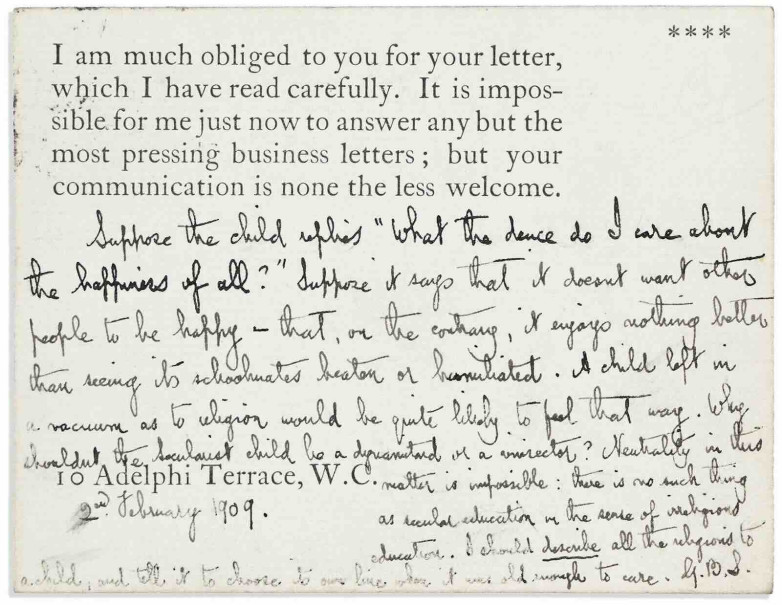 ****
I am much obliged to you for your letter,
which I have read carefully. It is impos-
sible for me just now to answer any but the
most pressing business letters; but your
communication is none the less welcome.
Suppose the child replies "What the deuce do I care about
the happiness of all?" Suppose it says that it doesnt want other
people to be happy – that, on the contrary, it enjoys nothing better
than seeing its schoolmates beaten or humiliated. A child left in
a vacuum as to religion would be quite likely to feel that way. Why
shouldnt the Secularist child be a dynamitard or a vivisector? Neutrality in this
10 Adelphi Terrace, W.C.
matter is impossible: there is no such thing
2nd February 1909.
as secular education in the sense of irreligious
education. I should describe all the religions to
a child, and tell it to choose its own line when it was old enough to care. G.B.S.